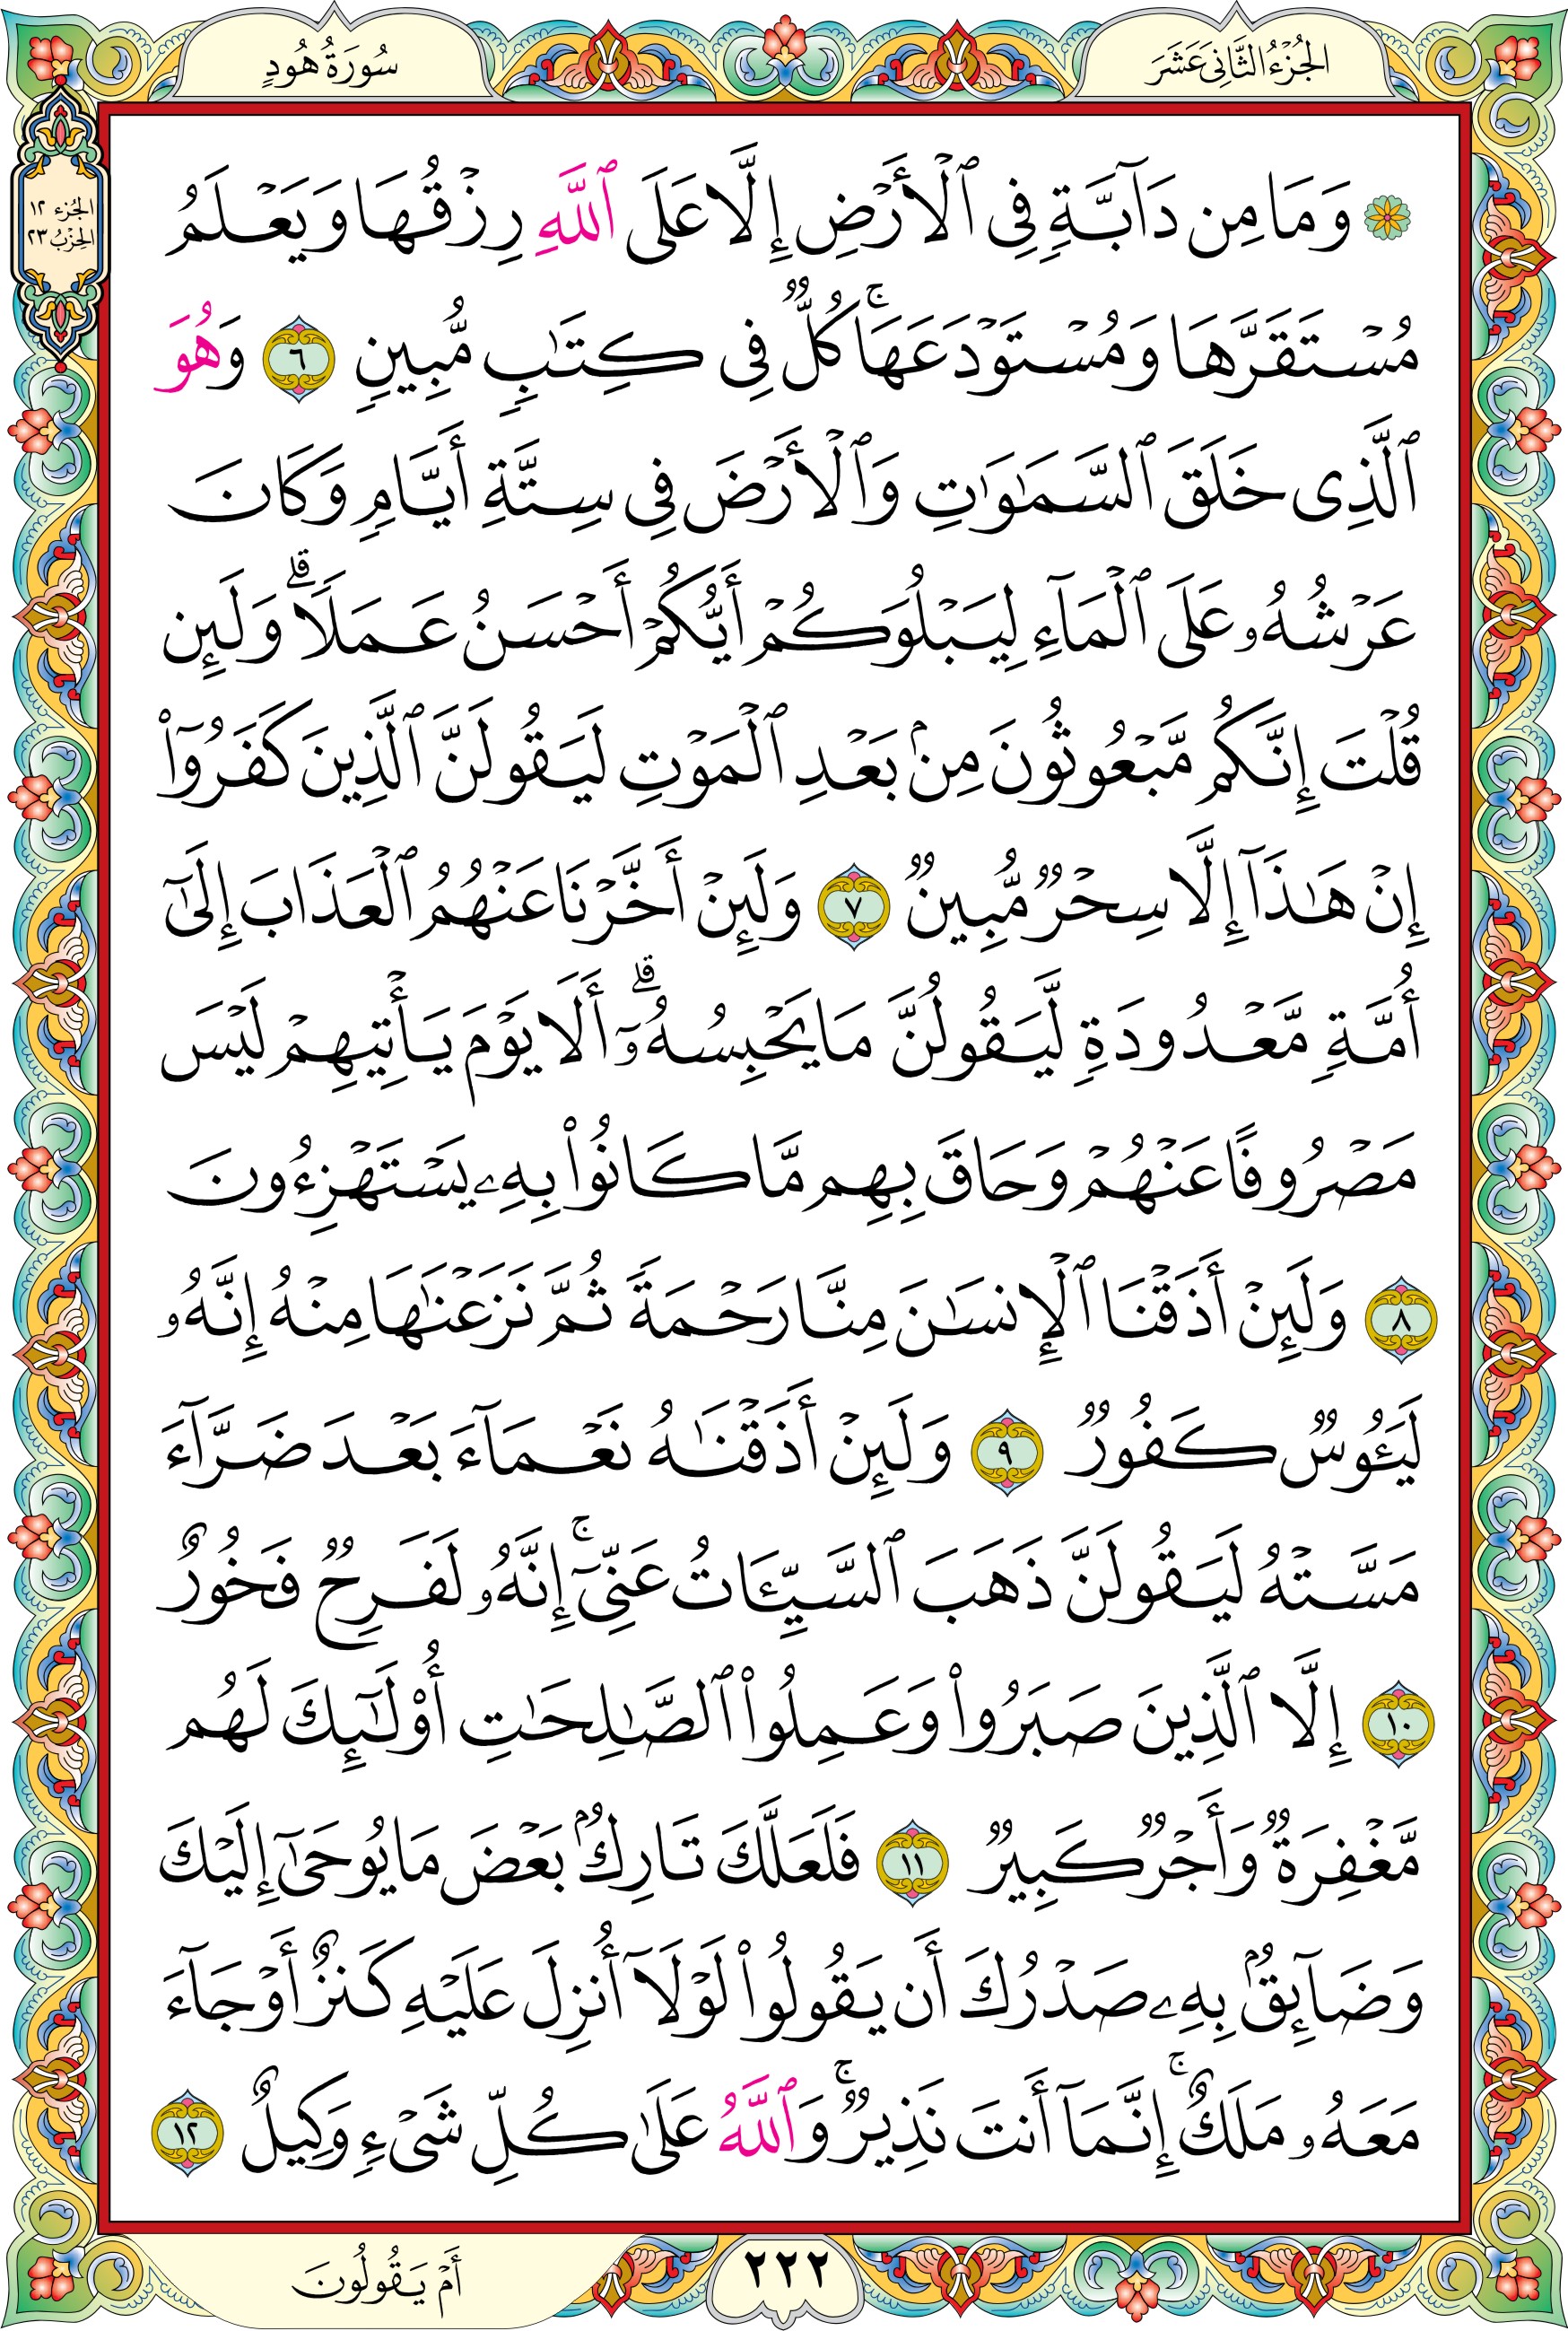 الجُزْءُ الثَّانِي عَشَرَ
سُورَةُ هُودٍ
الجزء ١٢
الحِزْبُ ٢٣
۞ وَمَا مِن دَآبَّةٖ فِي ٱلۡأَرۡضِ إِلَّا عَلَى ٱللَّهِ رِزۡقُهَا وَيَعۡلَمُ
مُسۡتَقَرَّهَا وَمُسۡتَوۡدَعَهَاۚ كُلّٞ فِي كِتَٰبٖ مُّبِينٖ ٦ وَهُوَ
ٱلَّذِي خَلَقَ ٱلسَّمَٰوَٰتِ وَٱلۡأَرۡضَ فِي سِتَّةِ أَيَّامٖ وَكَانَ
عَرۡشُهُۥ عَلَى ٱلۡمَآءِ لِيَبۡلُوَكُمۡ أَيُّكُمۡ أَحۡسَنُ عَمَلٗاۗ وَلَئِن
قُلۡتَ إِنَّكُم مَّبۡعُوثُونَ مِنۢ بَعۡدِ ٱلۡمَوۡتِ لَيَقُولَنَّ ٱلَّذِينَ كَفَرُوٓاْ
إِنۡ هَٰذَآ إِلَّا سِحۡرٞ مُّبِينٞ ٧ وَلَئِنۡ أَخَّرۡنَا عَنۡهُمُ ٱلۡعَذَابَ إِلَىٰٓ
أُمَّةٖ مَّعۡدُودَةٖ لَّيَقُولُنَّ مَا يَحۡبِسُهُۥٓۗ أَلَا يَوۡمَ يَأۡتِيهِمۡ لَيۡسَ
مَصۡرُوفًا عَنۡهُمۡ وَحَاقَ بِهِم مَّا كَانُواْ بِهِۦ يَسۡتَهۡزِءُونَ
٨ وَلَئِنۡ أَذَقۡنَا ٱلۡإِنسَٰنَ مِنَّا رَحۡمَةٗ ثُمَّ نَزَعۡنَٰهَا مِنۡهُ إِنَّهُۥ
لَيَـُٔوسٞ كَفُورٞ ٩ وَلَئِنۡ أَذَقۡنَٰهُ نَعۡمَآءَ بَعۡدَ ضَرَّآءَ
مَسَّتۡهُ لَيَقُولَنَّ ذَهَبَ ٱلسَّيِّـَٔاتُ عَنِّيٓۚ إِنَّهُۥ لَفَرِحٞ فَخُورٌ
١٠ إِلَّا ٱلَّذِينَ صَبَرُواْ وَعَمِلُواْ ٱلصَّٰلِحَٰتِ أُوْلَٰٓئِكَ لَهُم
مَّغۡفِرَةٞ وَأَجۡرٞ كَبِيرٞ ١١ فَلَعَلَّكَ تَارِكُۢ بَعۡضَ مَا يُوحَىٰٓ إِلَيۡكَ
وَضَآئِقُۢ بِهِۦ صَدۡرُكَ أَن يَقُولُواْ لَوۡلَآ أُنزِلَ عَلَيۡهِ كَنزٌ أَوۡ جَآءَ
مَعَهُۥ مَلَكٌۚ إِنَّمَآ أَنتَ نَذِيرٞۚ وَٱللَّهُ عَلَىٰ كُلِّ شَيۡءٖ وَكِيلٌ ١٢
٢٢٢
أَمۡ يَقُولُونَ